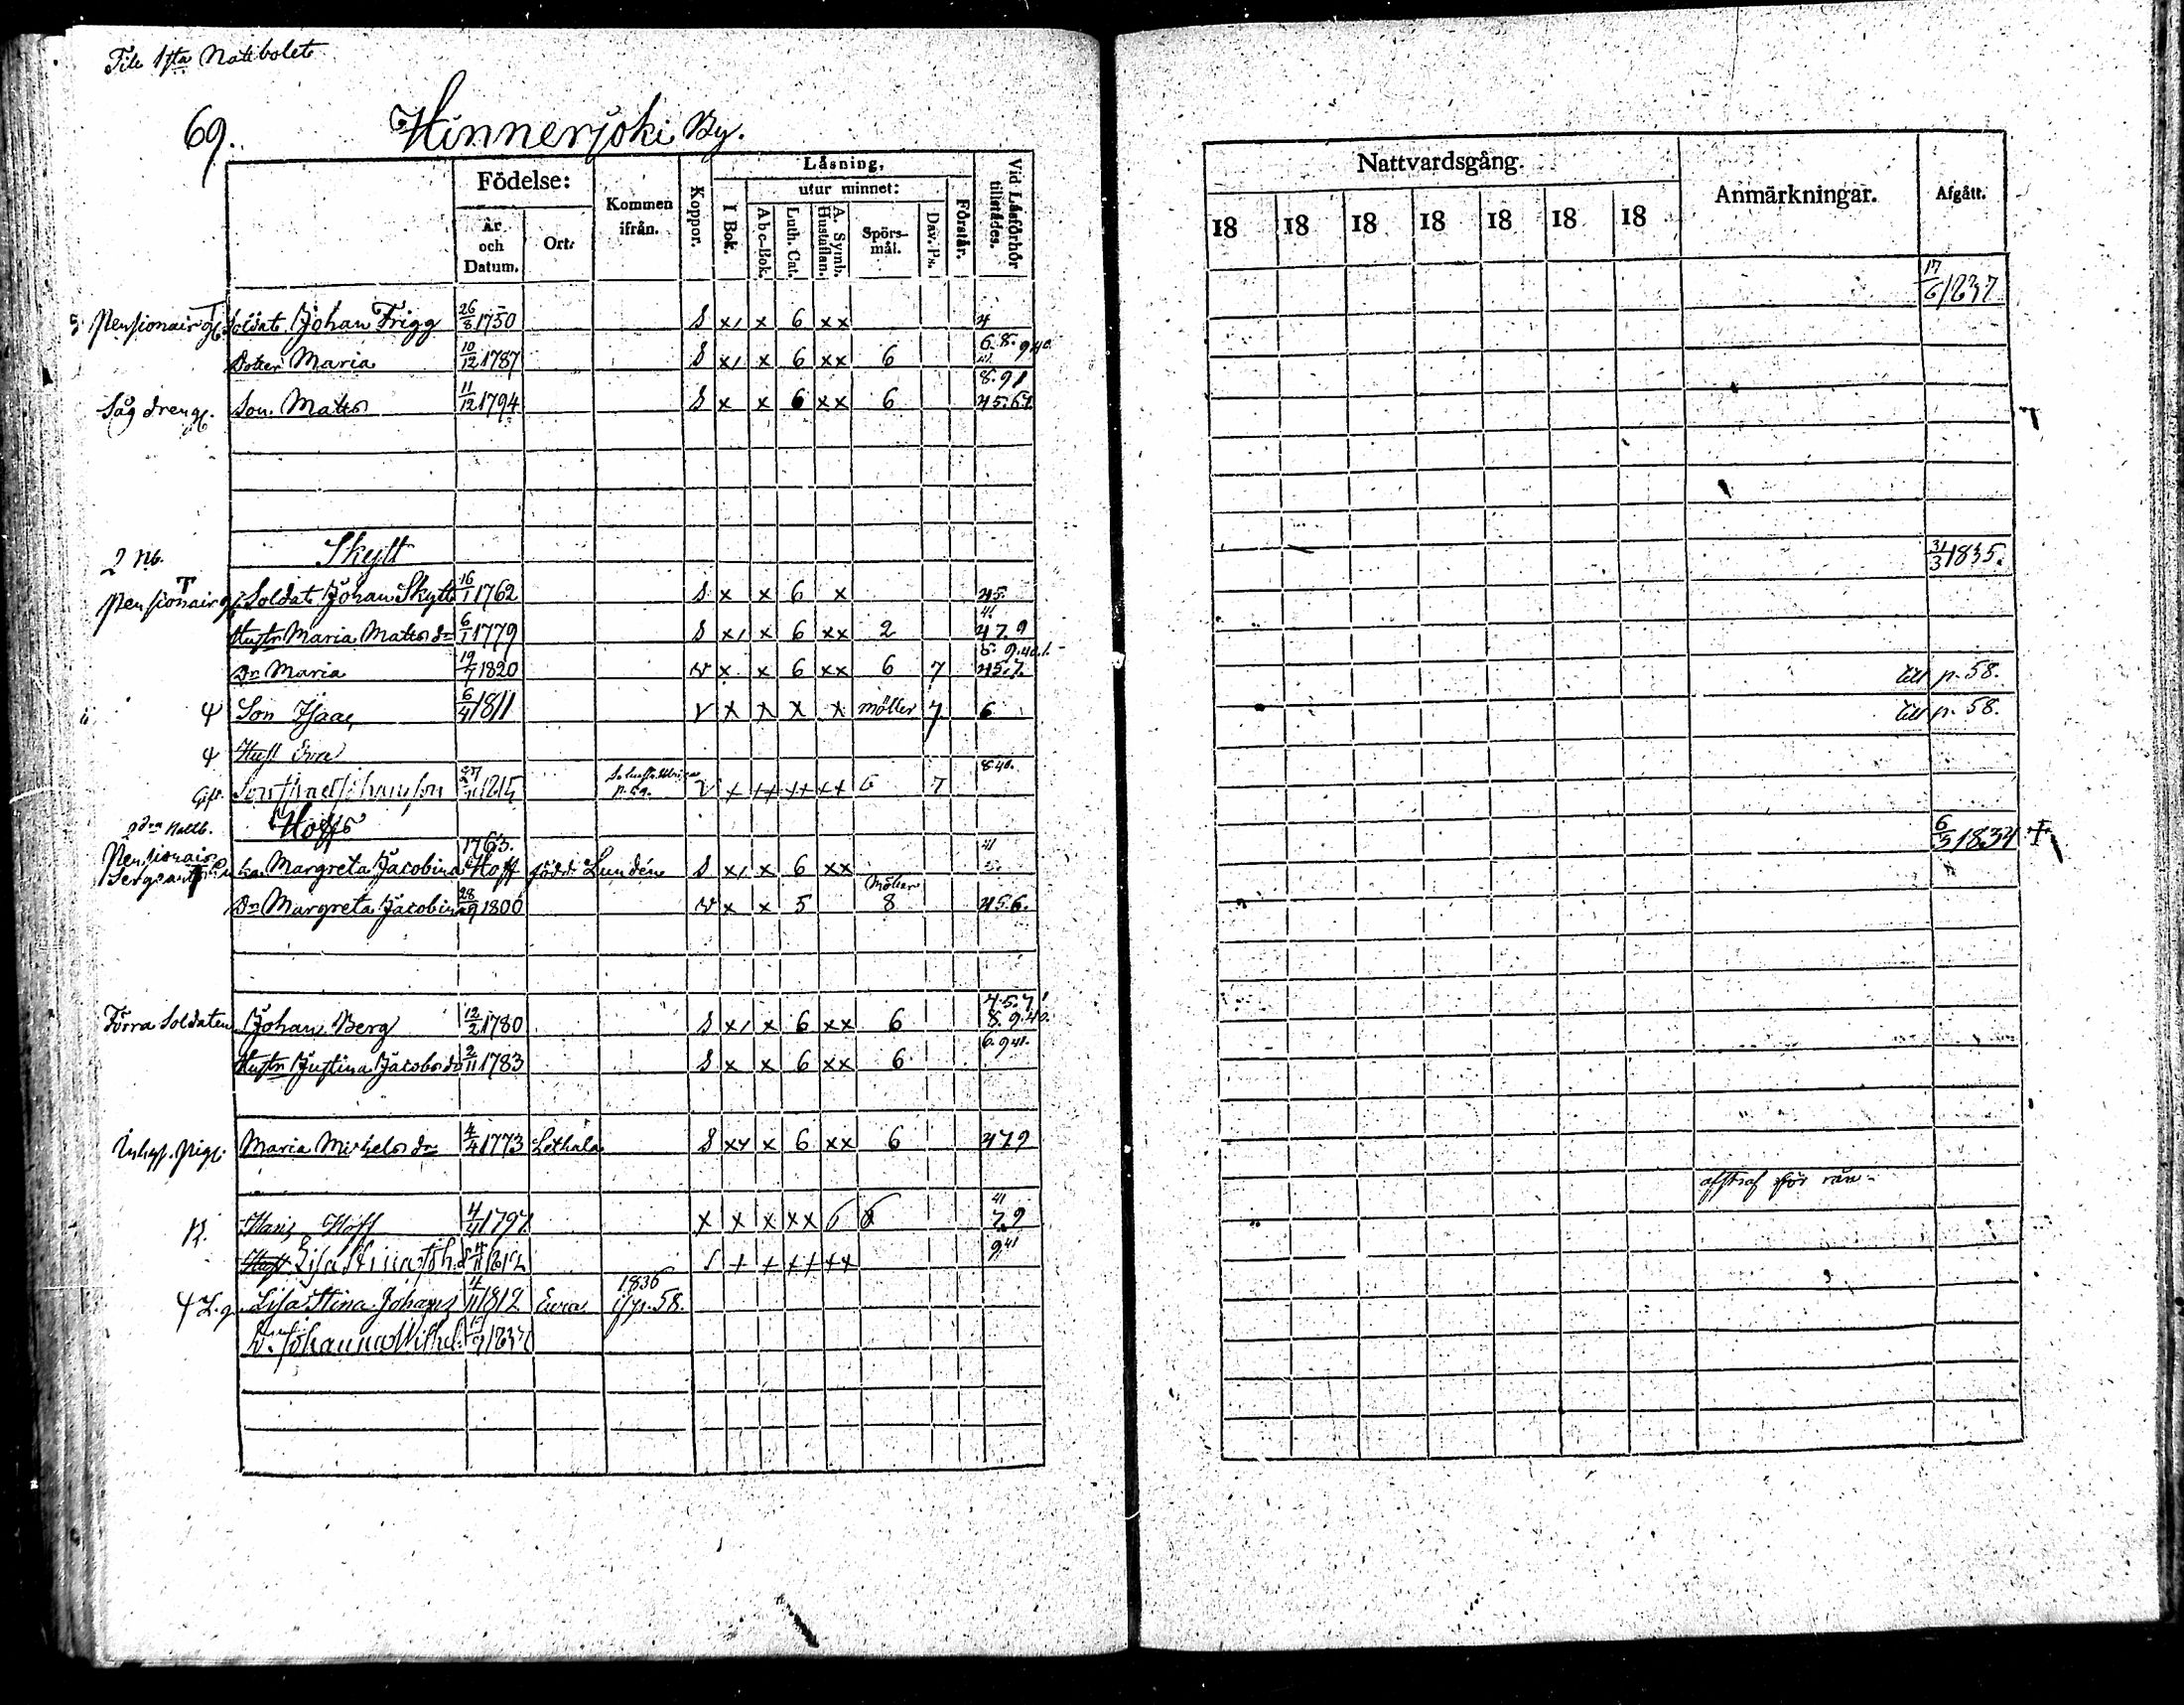 Till 1sta Nattbolet
69. Hinnerjoki By.
Födelse: År och Datum. Ort. Kommen ifrån. Koppor. Läsning, I Bok. utur minnet: Abc-Bok. Luth. Cat. A. Symb. Hustaflan. Spörs-mål. Dav. Ps. Förstår. Vid Läsförhör tillstädes.
Nattvardsgång. 18 18 18 18 18 18 18 Anmärkningar. Afgått.
Pensionair Soldat Johan Frigg 26/8 1750 S x/ x 6 xx 4 17/6 1837
Dotter Maria 10/12 1787 S x/ x 6 xx 6 6.8. 9 40. 41.
Son Matts 11/12 1794 S x x 6 xx 6 8.91 45.6.7.
2 Nb. Skytt
Pensionair Soldat Johan Skytt 16/1 1762 S x x 6 x 45. 31/3 1835.
Hustr Maria Matts dr 6/1 1779 S x/ x 6 xx 2 41. 47.9
Dr Maria 19/7 1820 v x x 6 xx 6 7 8. 9.40.1. 45.7. till p. 58.
Son Isaac 6/4 1811 v x x x x möller 7 6 till p. 58.
Hust Eva
1815 v x xx xx xx 6 7 8.40.
2dra Nattb. Hoffs
Pensionair Sergeant Margreta Jacobina Hoff 1763. född Lundén S x/ x 6 xx 41 6/5 1834 +
Dr Margreta Jacobina 28/9 1800 v x x 5 möller 8 45.6.
Förra Soldaten Johan Berg 12/2 1780 S x/ x 6 xx 6 4.5.7. 8.9.40.
Hustr Justina Jacobs dr 2/11 1783 S x x 6 xx 6 6.9 41.
Inhys. Pig. Maria Michels dr 4/4 1773 Lethala S xx x 6 xx 6 479
Hans Hoff 4/4 1797 x x x xx 6 6 41 7.9
Hust Lisa Stina Joh. d 4/11 1812 S + + ++ ++ 9 41
Lisa Stina Johans 4/11 1812 Eura 1836 p. 58.
Dr Johanna Wilhel. 1837